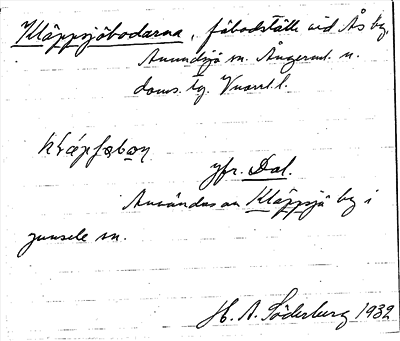 Kläppsjöbodarna, fäbodställe vid Ås by,
Anundsjö sn. Ångerml. n.
doms. tg. Vnorrl.l.
klǽpſǝbǫn
jfr. Dal.
Användes av Kläppsjö by i
Junsele sn.
H. A. Söderberg 1932